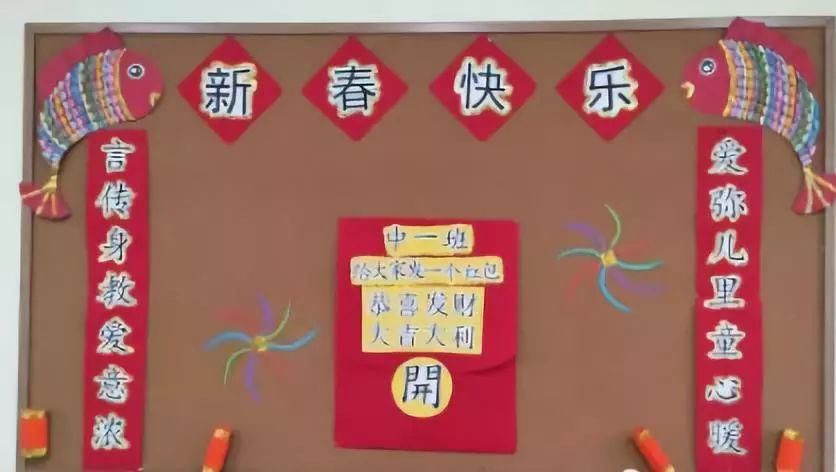 新春快乐
言传身教爱意浓
爱弥儿里童心暖
中一班
给大家发一个红包
恭喜发财
大吉大利
開